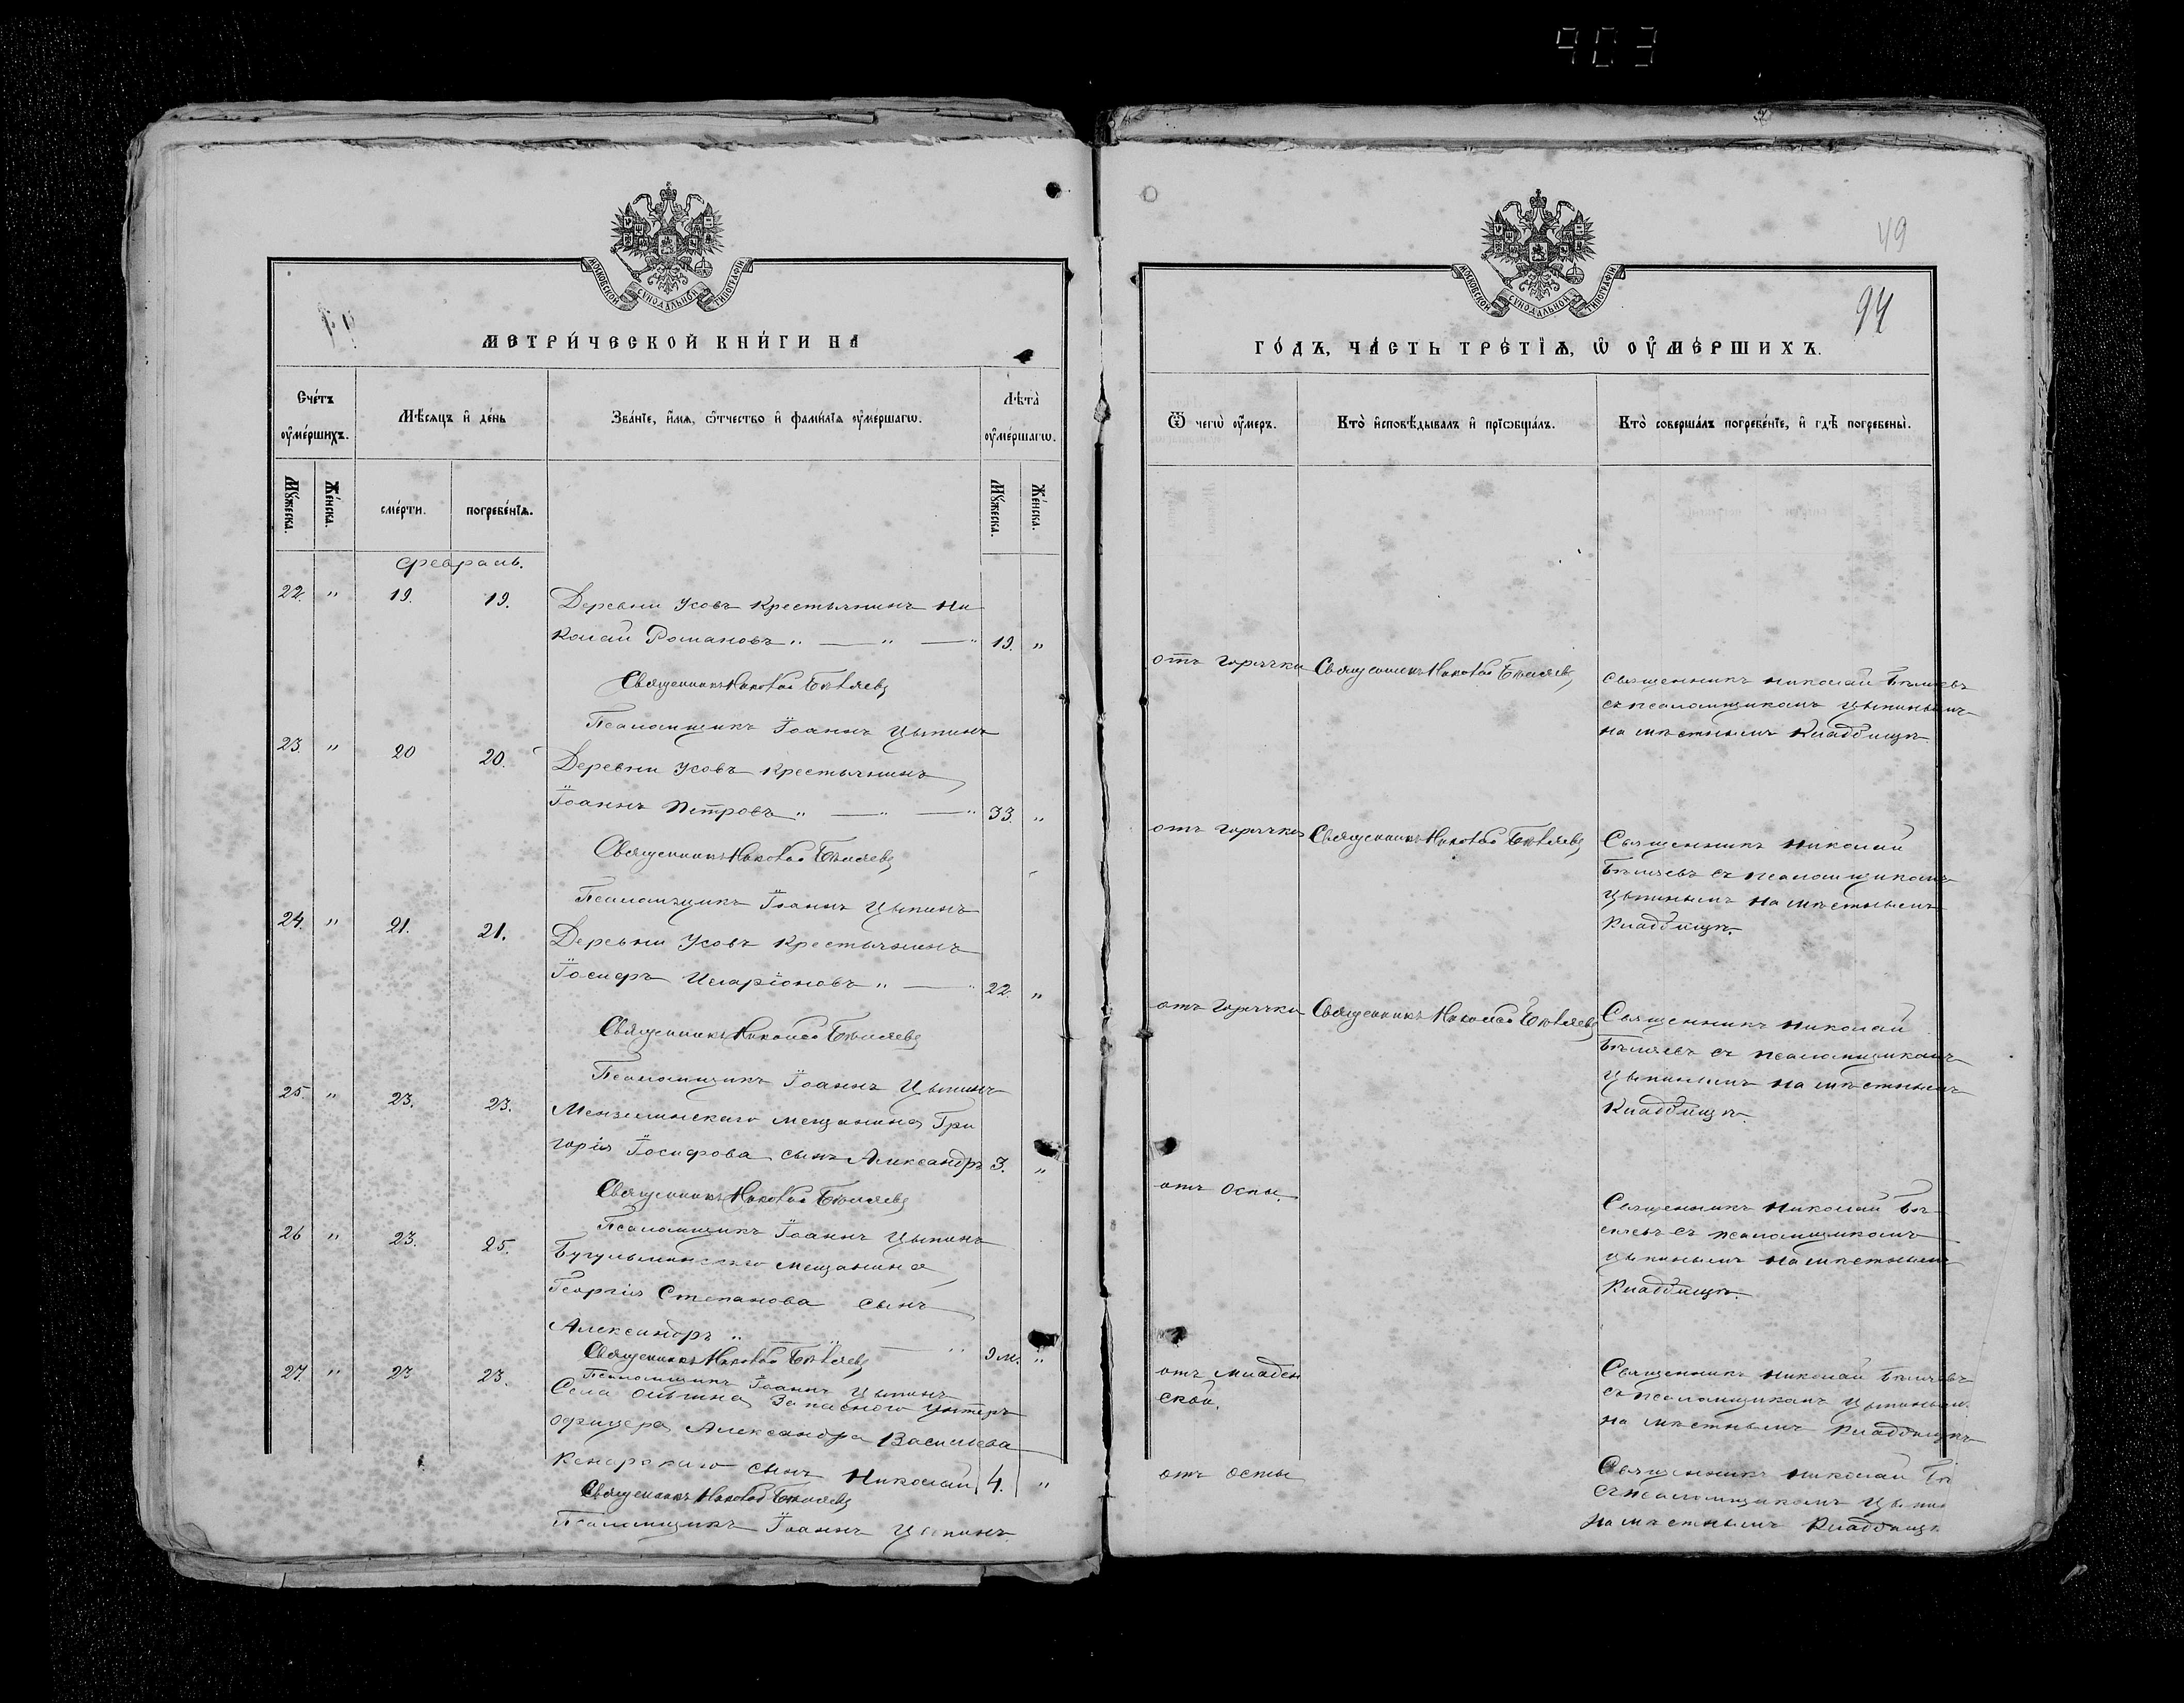 903
49
94
МОСКОВСКОЙ СУНОДАЛЬНОЙ ТИПОГРАФІИ
МЕТРИ́ЧЕСКОЙ КНИ́ГИ НА
Сче́тъ ᲂу҆ме́ршихъ.
Мѣ́сяцъ и҆ де́нь
Зва́нїе, и҆́мя, ѻ҆́тчество и҆ фами́лїя ᲂу҆ме́ршагѡ.
Лѣта̀ ᲂу҆ме́ршагѡ.
Мꙋ́жеска.
Же́нска.
сме́рти.
погребе́нїѧ.
Мꙋ́жеска.
Же́нска.
Февраль.
22. " 19. 19. Деревни Усовъ крестьянинъ Ни
колай Романовъ " — " — " 19. "
Священникъ Николай Бѣляевъ
Псаломщикъ Іоаннъ Цыпинъ
23. " 20 20. Деревни Усовъ крестьянинъ
Іоаннъ Петровъ " — " — " 33. "
Священникъ Николай Бѣляевъ
Псаломщикъ Іоаннъ Цыпинъ
24. " 21. 21. Деревни Усовъ крестьянинъ
Іосифъ Иларіоновъ " — " 22. "
Священникъ Николай Бѣляевъ
Псаломщикъ Іоаннъ Цыпинъ
25. " 23. 23. Мензелинскаго мещанина Гри
горія Іосифова сынъ Александръ 3. "
Священникъ Николай Бѣляевъ
Псаломщикъ Іоаннъ Цыпинъ
26 " 23. 25. Бугульминскаго мещанина
Георгія Степанова сынъ
Александръ " — " 9 м. "
Священникъ Николай Бѣляевъ
Псаломщикъ Іоаннъ Цыпинъ
27 " 23 23. Села запаснаго унтеръ
офицера Александра Васильева
сынъ Николай 4. "
Священникъ Николай Бѣляевъ
Псаломщикъ Іоаннъ Цыпинъ
МОСКОВСКОЙ СУНОДАЛЬНОЙ ТИПОГРАФІИ
ГО́ДЪ, ЧА́СТЬ ТРЕ́ТЇѦ, Ѡ҆ ОУ҆МЕ́РШИХЪ.
Ѿ чегѡ̀ ᲂу҆́меръ.
Кто̀ и҆сповѣ́дывалъ и҆ прїѡбща́лъ.
Кто̀ соверша́лъ погребе́нїе, и҆ гдѣ̀ погребены̀.
отъ горячки Священникъ Николай Бѣляевъ
Священникъ Николай Бѣляевъ
съ псаломщикомъ Цыпинымъ
на мѣстномъ кладбищѣ.
отъ горячки Священникъ Николай Бѣляевъ
Священникъ Николай
Бѣляевъ съ псаломщикомъ
Цыпинымъ на мѣстномъ
кладбищѣ.
отъ горячки Священникъ Николай Бѣляевъ
Священникъ Николай
Бѣляевъ съ псаломщикомъ
Цыпинымъ на мѣстномъ
кладбищѣ.
отъ оспы.
Священникъ Николай Бѣ
ляевъ съ псаломщикомъ
Цыпинымъ на мѣстномъ
кладбищѣ.
отъ младен
ской.
Священникъ Николай Бѣляевъ
съ псаломщикомъ Цыпинымъ
на мѣстномъ кладбищѣ
отъ оспы
Священникъ Николай Бѣ
съ псаломщикомъ Цыпин
на мѣстномъ кладбищѣ